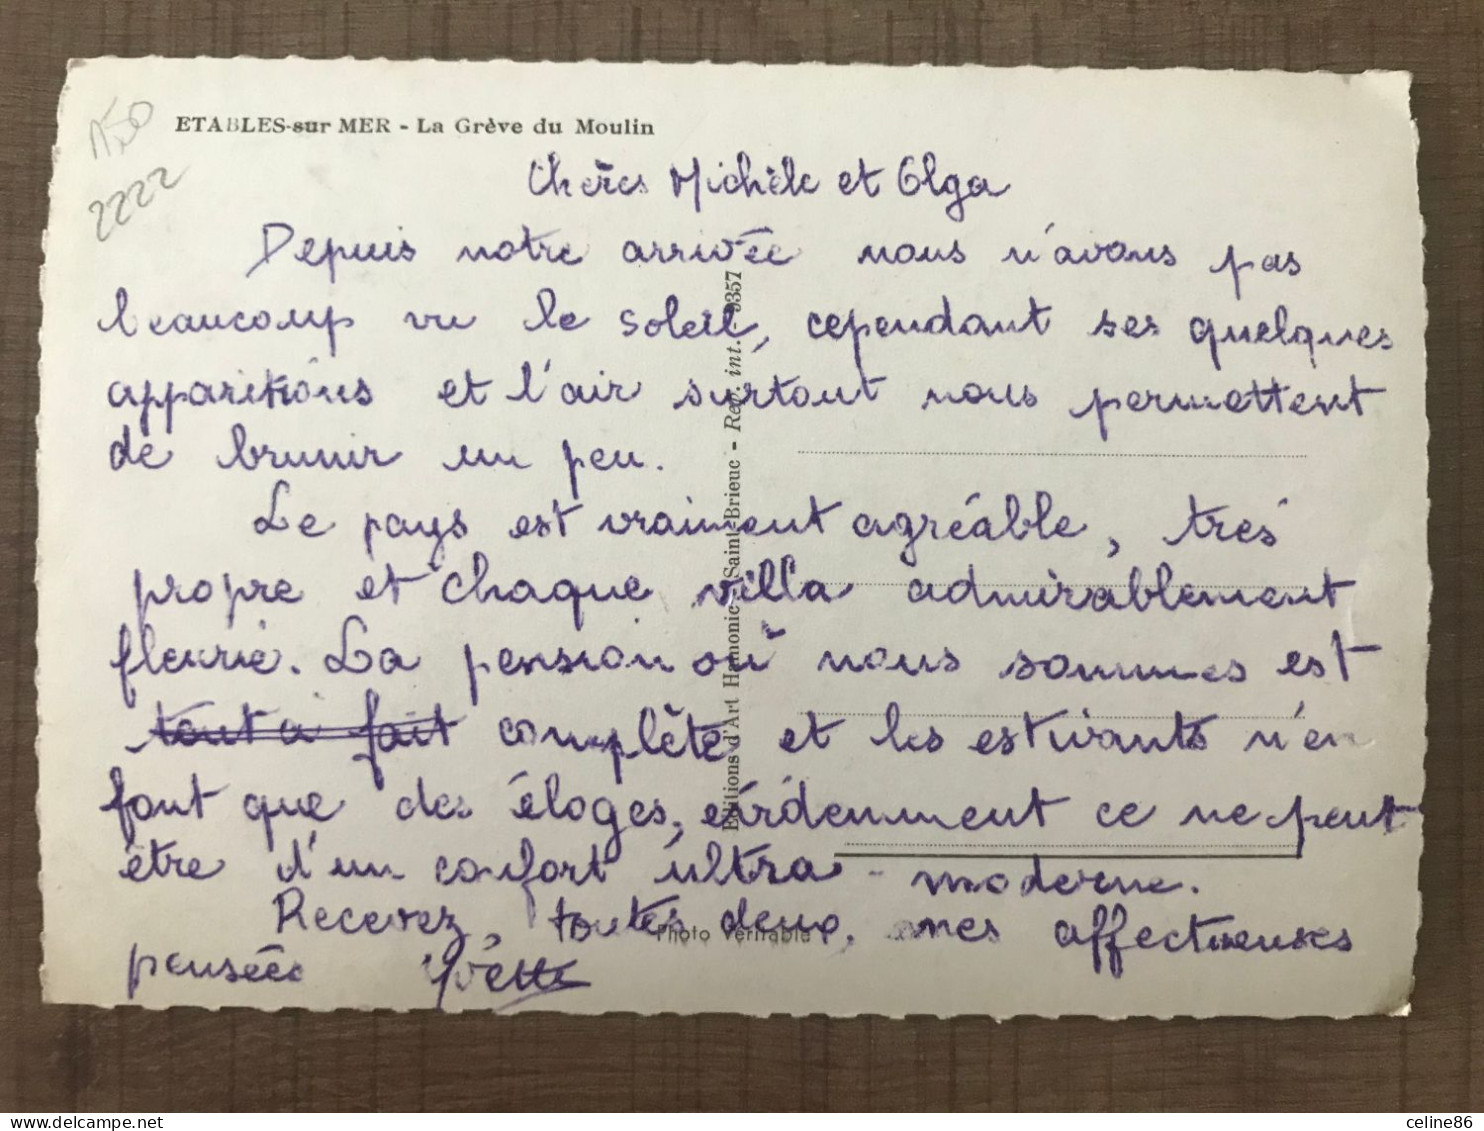 1,50
2222
ETABLES-sur MER - La Grève du Moulin
Chères Michèle et Olga
Depuis notre arrivée nous n'avons pas
beaucoup vu le soleil, cependant ses quelques
apparitions et l'air surtout nous permettent
de brunir un peu.
Le pays est vraiment agréable, très
propre et chaque villa admirablement
fleurie. La pension où nous sommes est
tout à fait complète et les estivants n'en
font que des éloges, évidemment ce ne peut
être d'un confort ultra-moderne.
Recevez, toutes deux, mes affectueuses
pensées Yvette
Editions d'Art Hamonic - Saint-Brieuc - Rep. int. - 9357
Photo Véritable
celine86